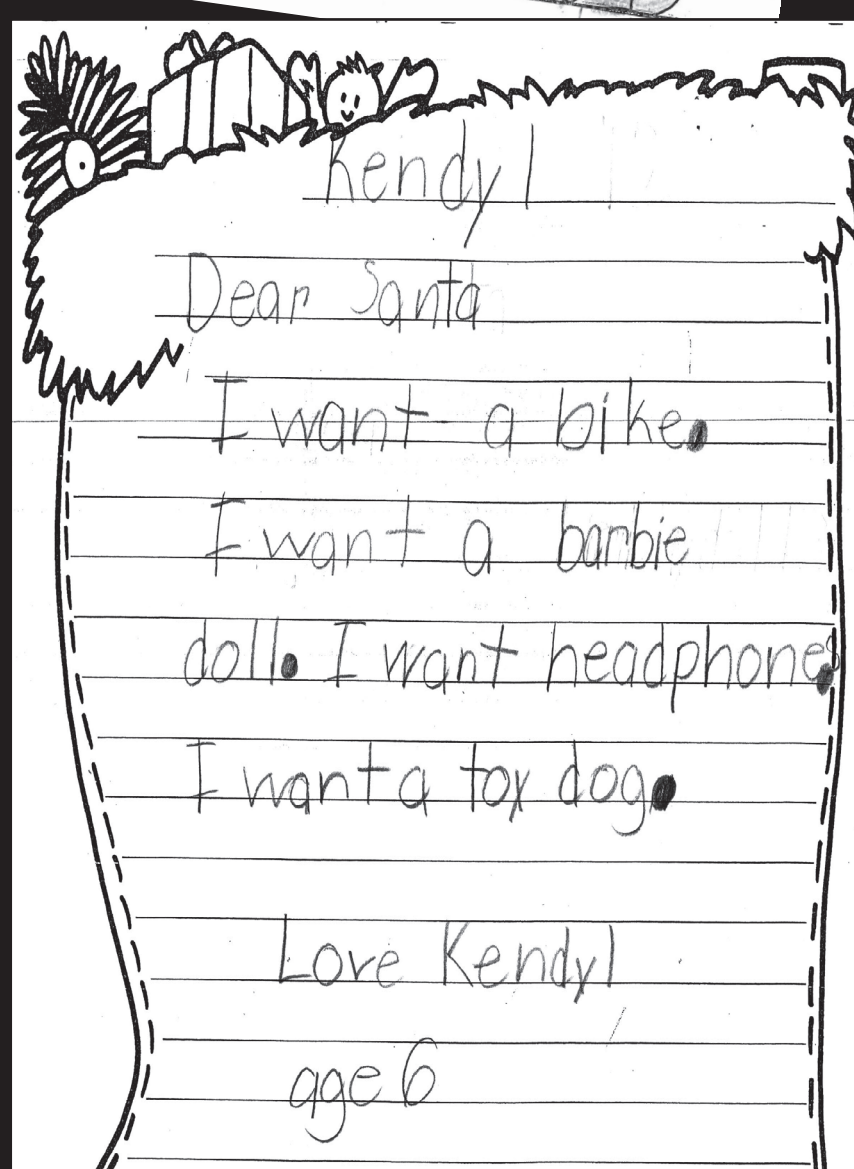 Kendyl
Dear Santa
I want a bike.
I want a barbie
doll. I want headphones.
I want a toy dog.
Love Kendyl
age 6